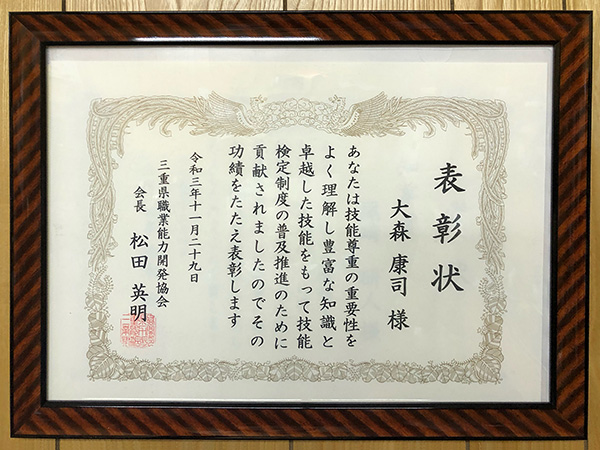 表彰状
大森 康司 様
あなたは技能尊重の重要性を
よく理解し豊富な知識と
卓越した技能をもって技能
検定制度の普及推進のために
貢献されましたのでその
功績をたたえ表彰します
令和三年十一月二十九日
三重県職業能力開発協会
会長 松田 英明